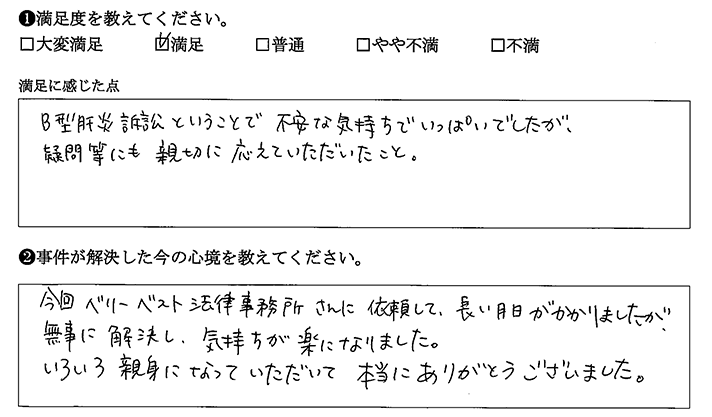 ❶満足度を教えてください。
□大変満足 ☑満足 □普通 □やや不満 □不満
満足に感じた点
B型肝炎訴訟ということで 不安な気持ちでいっぱいでしたが、
疑問等にも 親切に 応えていただいたこと。
❷事件が解決した今の心境を教えてください。
今回 ベリーベスト 法律事務所 さんに 依頼して、長い月日がかかりましたが、
無事に 解決し、気持ちが 楽になりました。
いろいろ 親身に なって いただいて 本当に ありがとう ございました。